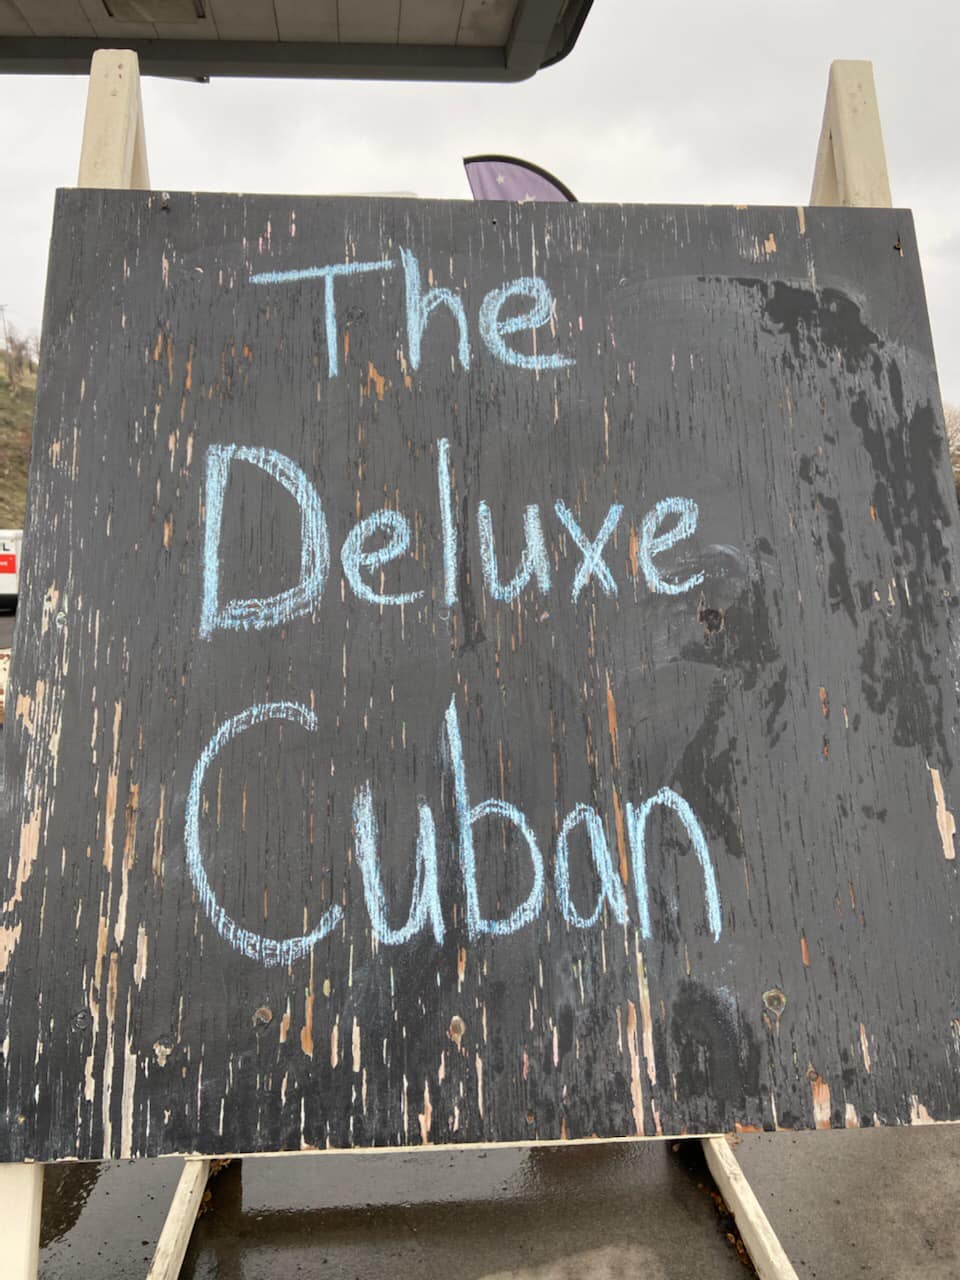 The
Deluxe
Cuban